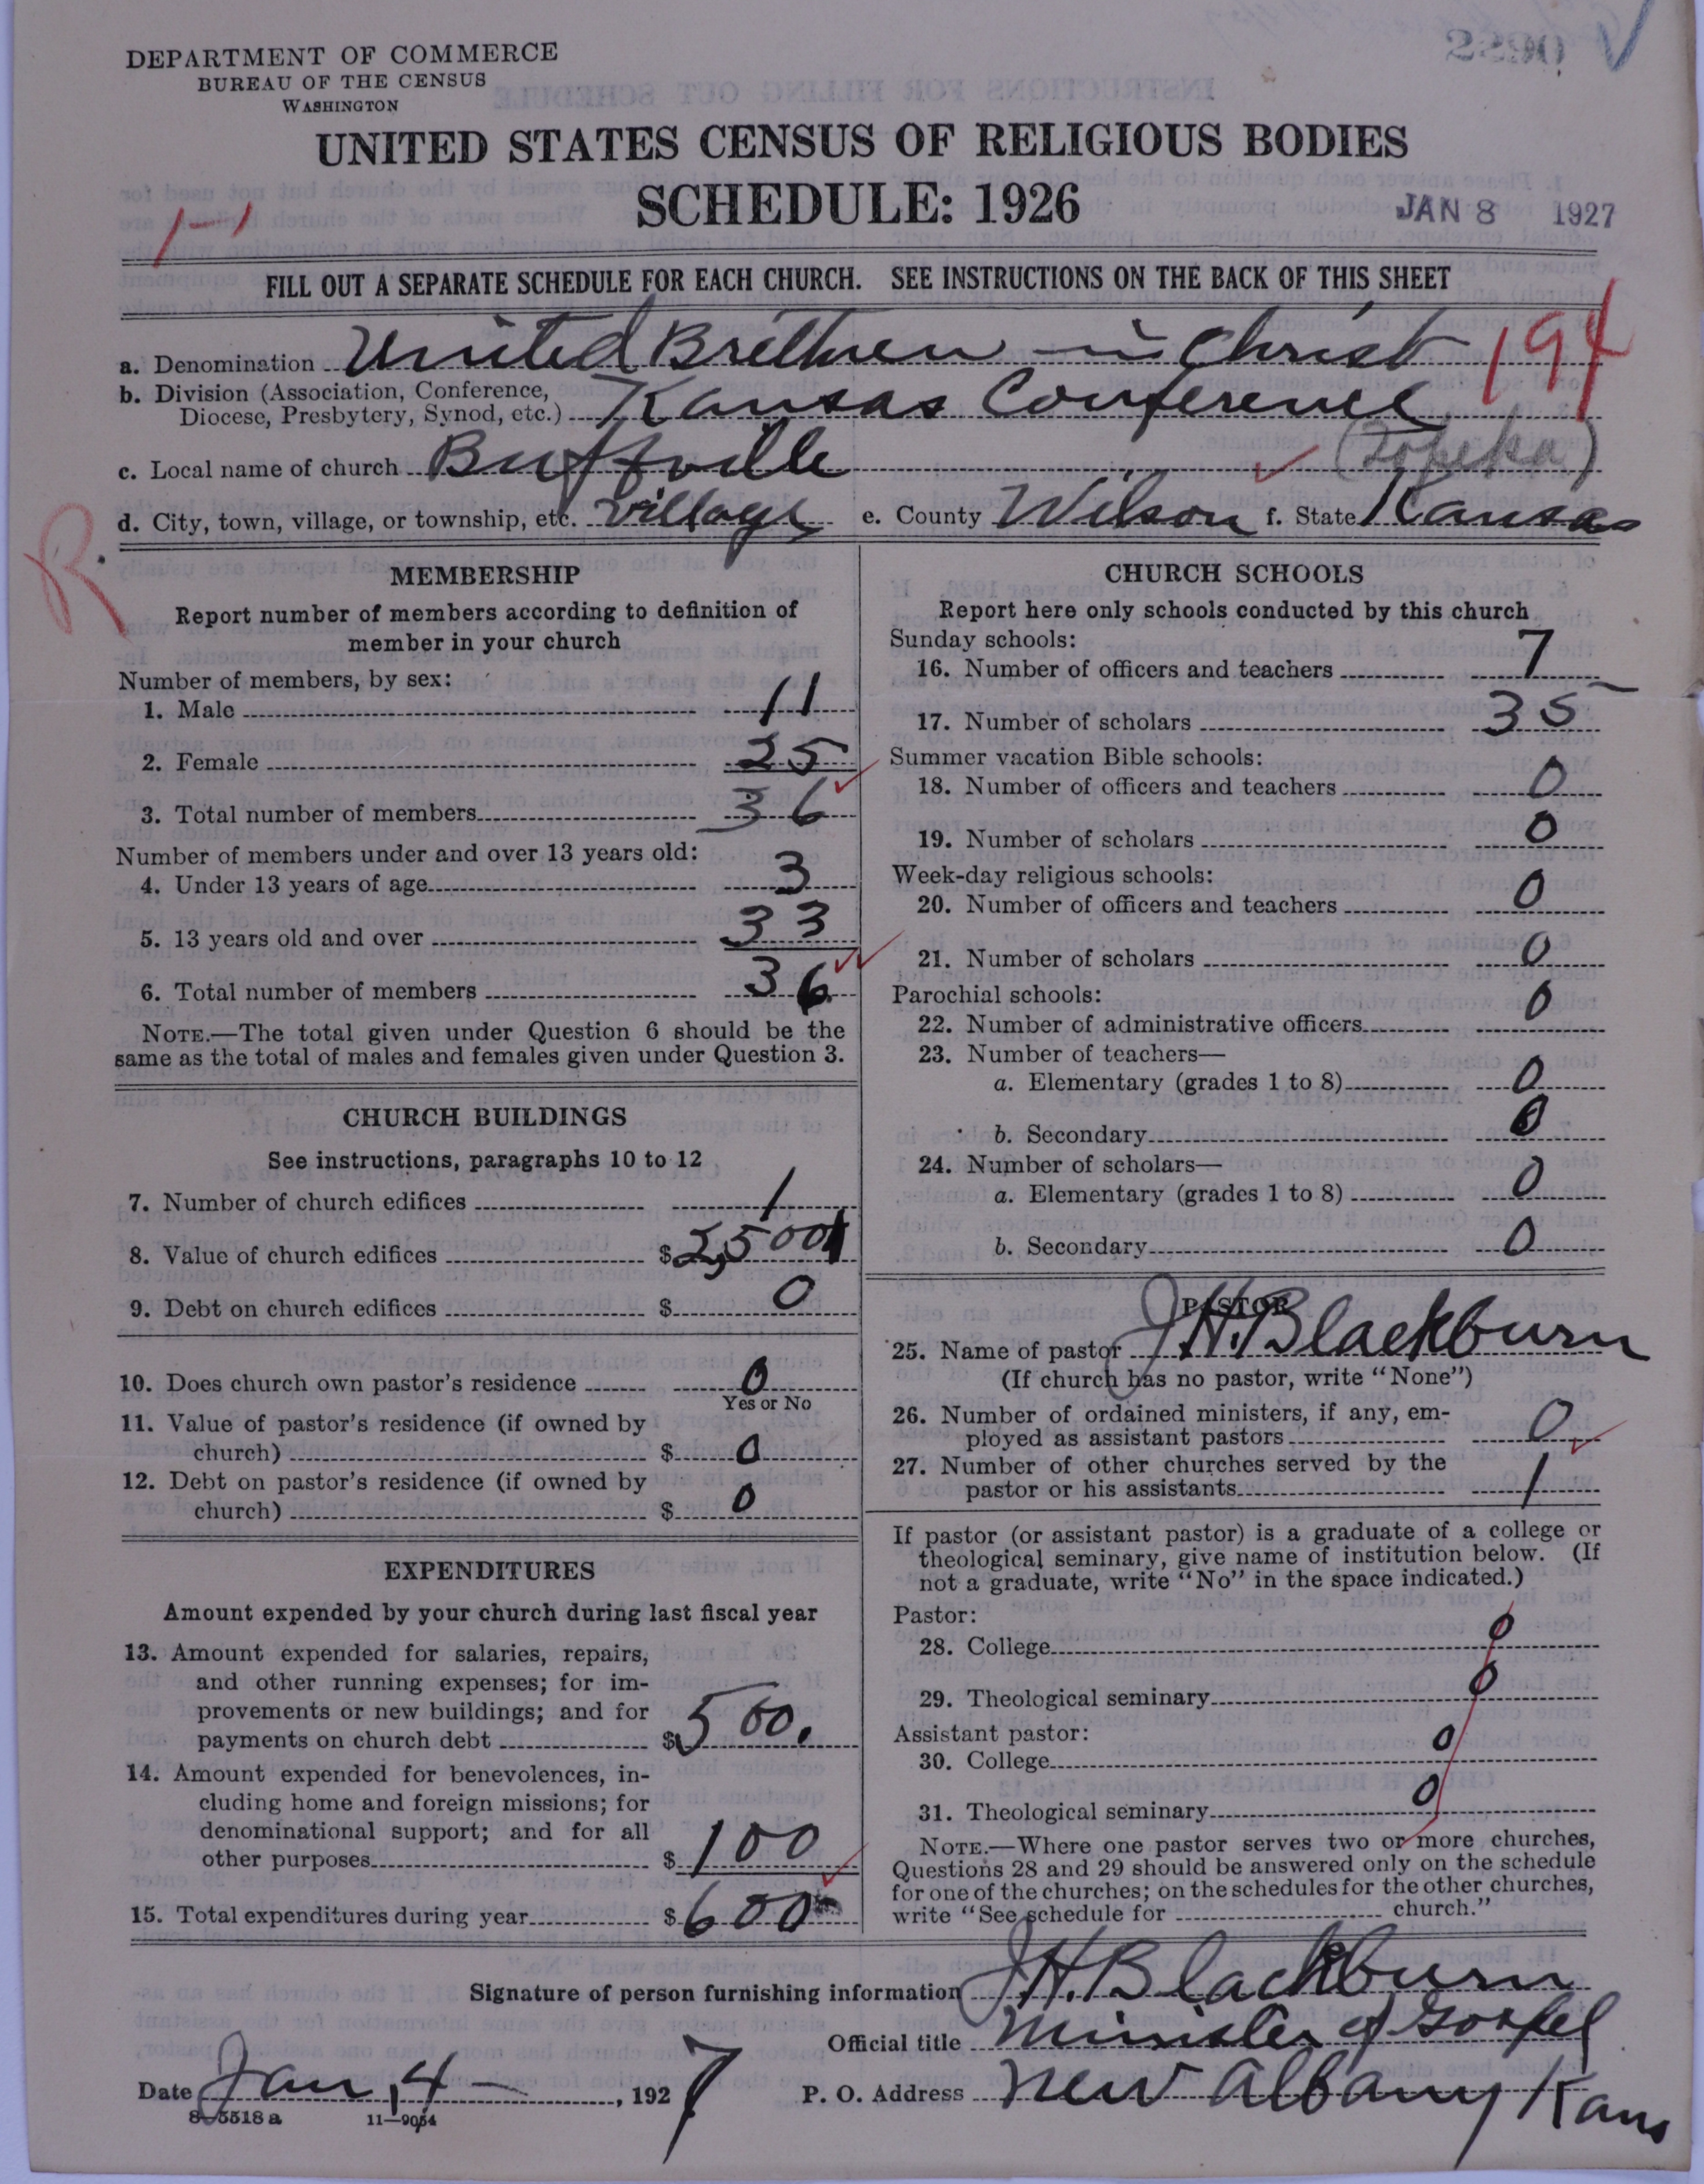 DEPARTMENT OF COMMERCE
BUREAU OF THE CENSUS
WASHINGTON
UNITED STATES CENSUS OF RELIGIOUS BODIES
SCHEDULE: 1926
1-1
JAN 8 1927
FILL OUT A SEPARATE SCHEDULE FOR EACH CHURCH. SEE INSTRUCTIONS ON THE BACK OF THIS SHEET
a. Denomination United Brethren in Christ 194
b. Division (Association, Conference,
Diocese, Presbytery, Synod, etc.) Kansas Conference
c. Local name of church Buffville (Topeka)
d. City, town, village, or township, etc. Village e. County Wilson f. State Kansas
R
MEMBERSHIP
Report number of members according to definition of
member in your church
Number of members, by sex:
1. Male 11
2. Female 25
3. Total number of members 36
Number of members under and over 13 years old:
4. Under 13 years of age 3
5. 13 years old and over 33
6. Total number of members 36
NOTE.—The total given under Question 6 should be the
same as the total of males and females given under Question 3.
CHURCH BUILDINGS
See instructions, paragraphs 10 to 12
7. Number of church edifices 1
8. Value of church edifices $2,500
9. Debt on church edifices $ 0
10. Does church own pastor's residence 0
Yes or No
11. Value of pastor's residence (if owned by
church) $ 0
12. Debt on pastor's residence (if owned by
church) $ 0
EXPENDITURES
Amount expended by your church during last fiscal year
13. Amount expended for salaries, repairs,
and other running expenses; for im-
provements or new buildings; and for
payments on church debt $500.
14. Amount expended for benevolences, in-
cluding home and foreign missions; for
denominational support; and for all
other purposes $100
15. Total expenditures during year $600
CHURCH SCHOOLS
Report here only schools conducted by this church
Sunday schools:
16. Number of officers and teachers 7
17. Number of scholars 35
Summer vacation Bible schools:
18. Number of officers and teachers 0
19. Number of scholars 0
Week-day religious schools:
20. Number of officers and teachers 0
21. Number of scholars 0
Parochial schools:
22. Number of administrative officers 0
23. Number of teachers—
a. Elementary (grades 1 to 8) 0
b. Secondary 0
24. Number of scholars—
a. Elementary (grades 1 to 8) 0
b. Secondary 0
PASTOR
25. Name of pastor J H. Blackburn
(If church has no pastor, write "None")
26. Number of ordained ministers, if any, em-
ployed as assistant pastors 0
27. Number of other churches served by the
pastor or his assistants 1
If pastor (or assistant pastor) is a graduate of a college or
theological seminary, give name of institution below. (If
not a graduate, write "No" in the space indicated.)
Pastor:
28. College 0
29. Theological seminary 0
Assistant pastor:
30. College 0
31. Theological seminary 0
NOTE.—Where one pastor serves two or more churches,
Questions 28 and 29 should be answered only on the schedule
for one of the churches; on the schedules for the other churches,
write "See schedule for church."
Signature of person furnishing information J H. Blackburn
Official title Minister of Gospel
Date Jan, 4 , 1927 P. O. Address New Albany Kans
8—5518 a 11—9054